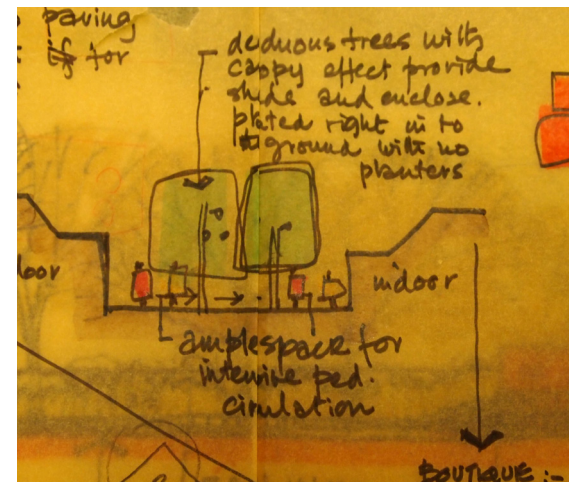 paving
if for
deduous trees with
cappy effect provide
shide and enclose.
plated right in to
ground with no
planters
door
indoor
ample space for
intewine ped.
cirulation
BOUTIQUE :-